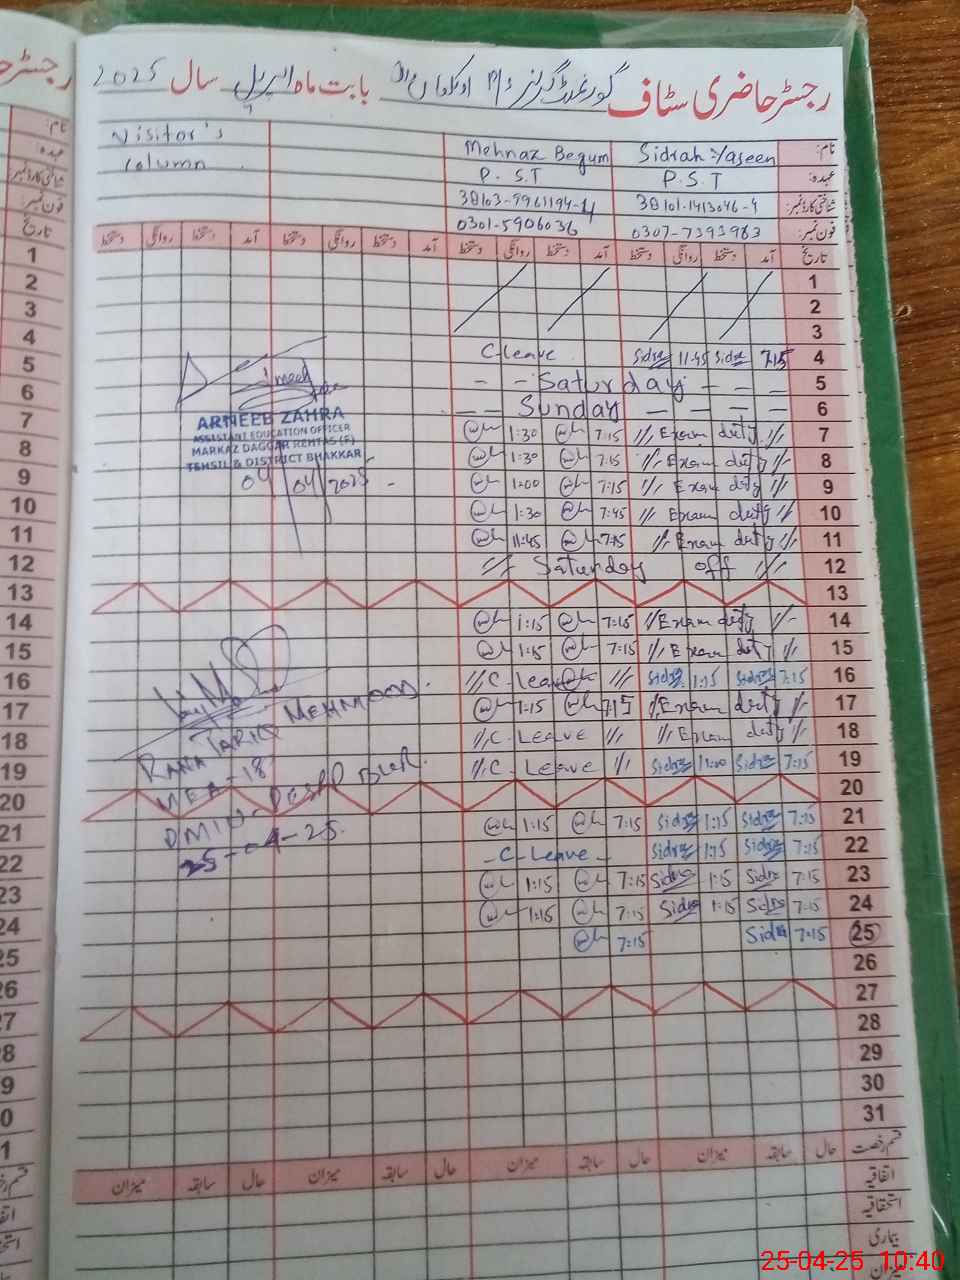 رجسٹر حاضری سٹاف گورنمنٹ گرلز بابت ماہ اپریل سال 2025
Visitor's Mehnaz Begum Sidrah Yaseen نام:
column P.S.T P.S.T عہدہ:
38103-7961194-4 38101-1413046-4 شناختی کارڈ نمبر:
0301-5906036 0307-7393983 فون نمبر:
دستخط روانگی دستخط آمد دستخط روانگی دستخط آمد دستخط روانگی دستخط آمد دستخط روانگی دستخط آمد تاریخ
1
2
3
C leave Sidra 11:45 Sidra 7:15 4
- - Saturday - - - 5
- - Sunday - - - - 6
1:30 7:15 // Exam duty // 7
1:30 7:15 // Exam duty // 8
1:00 7:15 // Exam duty // 9
1:30 7:45 // Exam duty // 10
11:45 7:15 // Exam duty // 11
// Saturday off // 12
13
1:15 7:15 // Exam duty // 14
1:15 7:15 // Exam duty // 15
// C-Leave // Sidra 1:15 Sidra 7:15 16
1:15 7:15 // Exam duty // 17
// C-Leave // // Exam duty // 18
// C-Leave // Sidra Sidra 7:15 19
20
1:15 7:15 Sidra 1:15 Sidra 7:15 21
- C-Leave - Sidra 1:15 Sidra 7:15 22
1:15 7:15 Sidra 1:15 Sidra 7:15 23
1:15 7:15 Sidra 1:15 Sidra 7:15 24
7:15 Sidra 7:15 25
26
27
28
29
30
31
ARMEEB ZAHRA
ASSISTANT EDUCATION OFFICER
MARKAZ DAGGAR REHTAS (F)
TEHSIL & DISTRICT BHAKKAR
04/04/2025
RANA TARIQ MEHMOOD
MEA-18
DMIO
25-04-25
میزان سابقہ حال میزان سابقہ حال میزان سابقہ حال میزان سابقہ حال قسم رخصت
اتفاقیہ
استحقاقیہ
بیماری
میزان
25-04-25 10:40